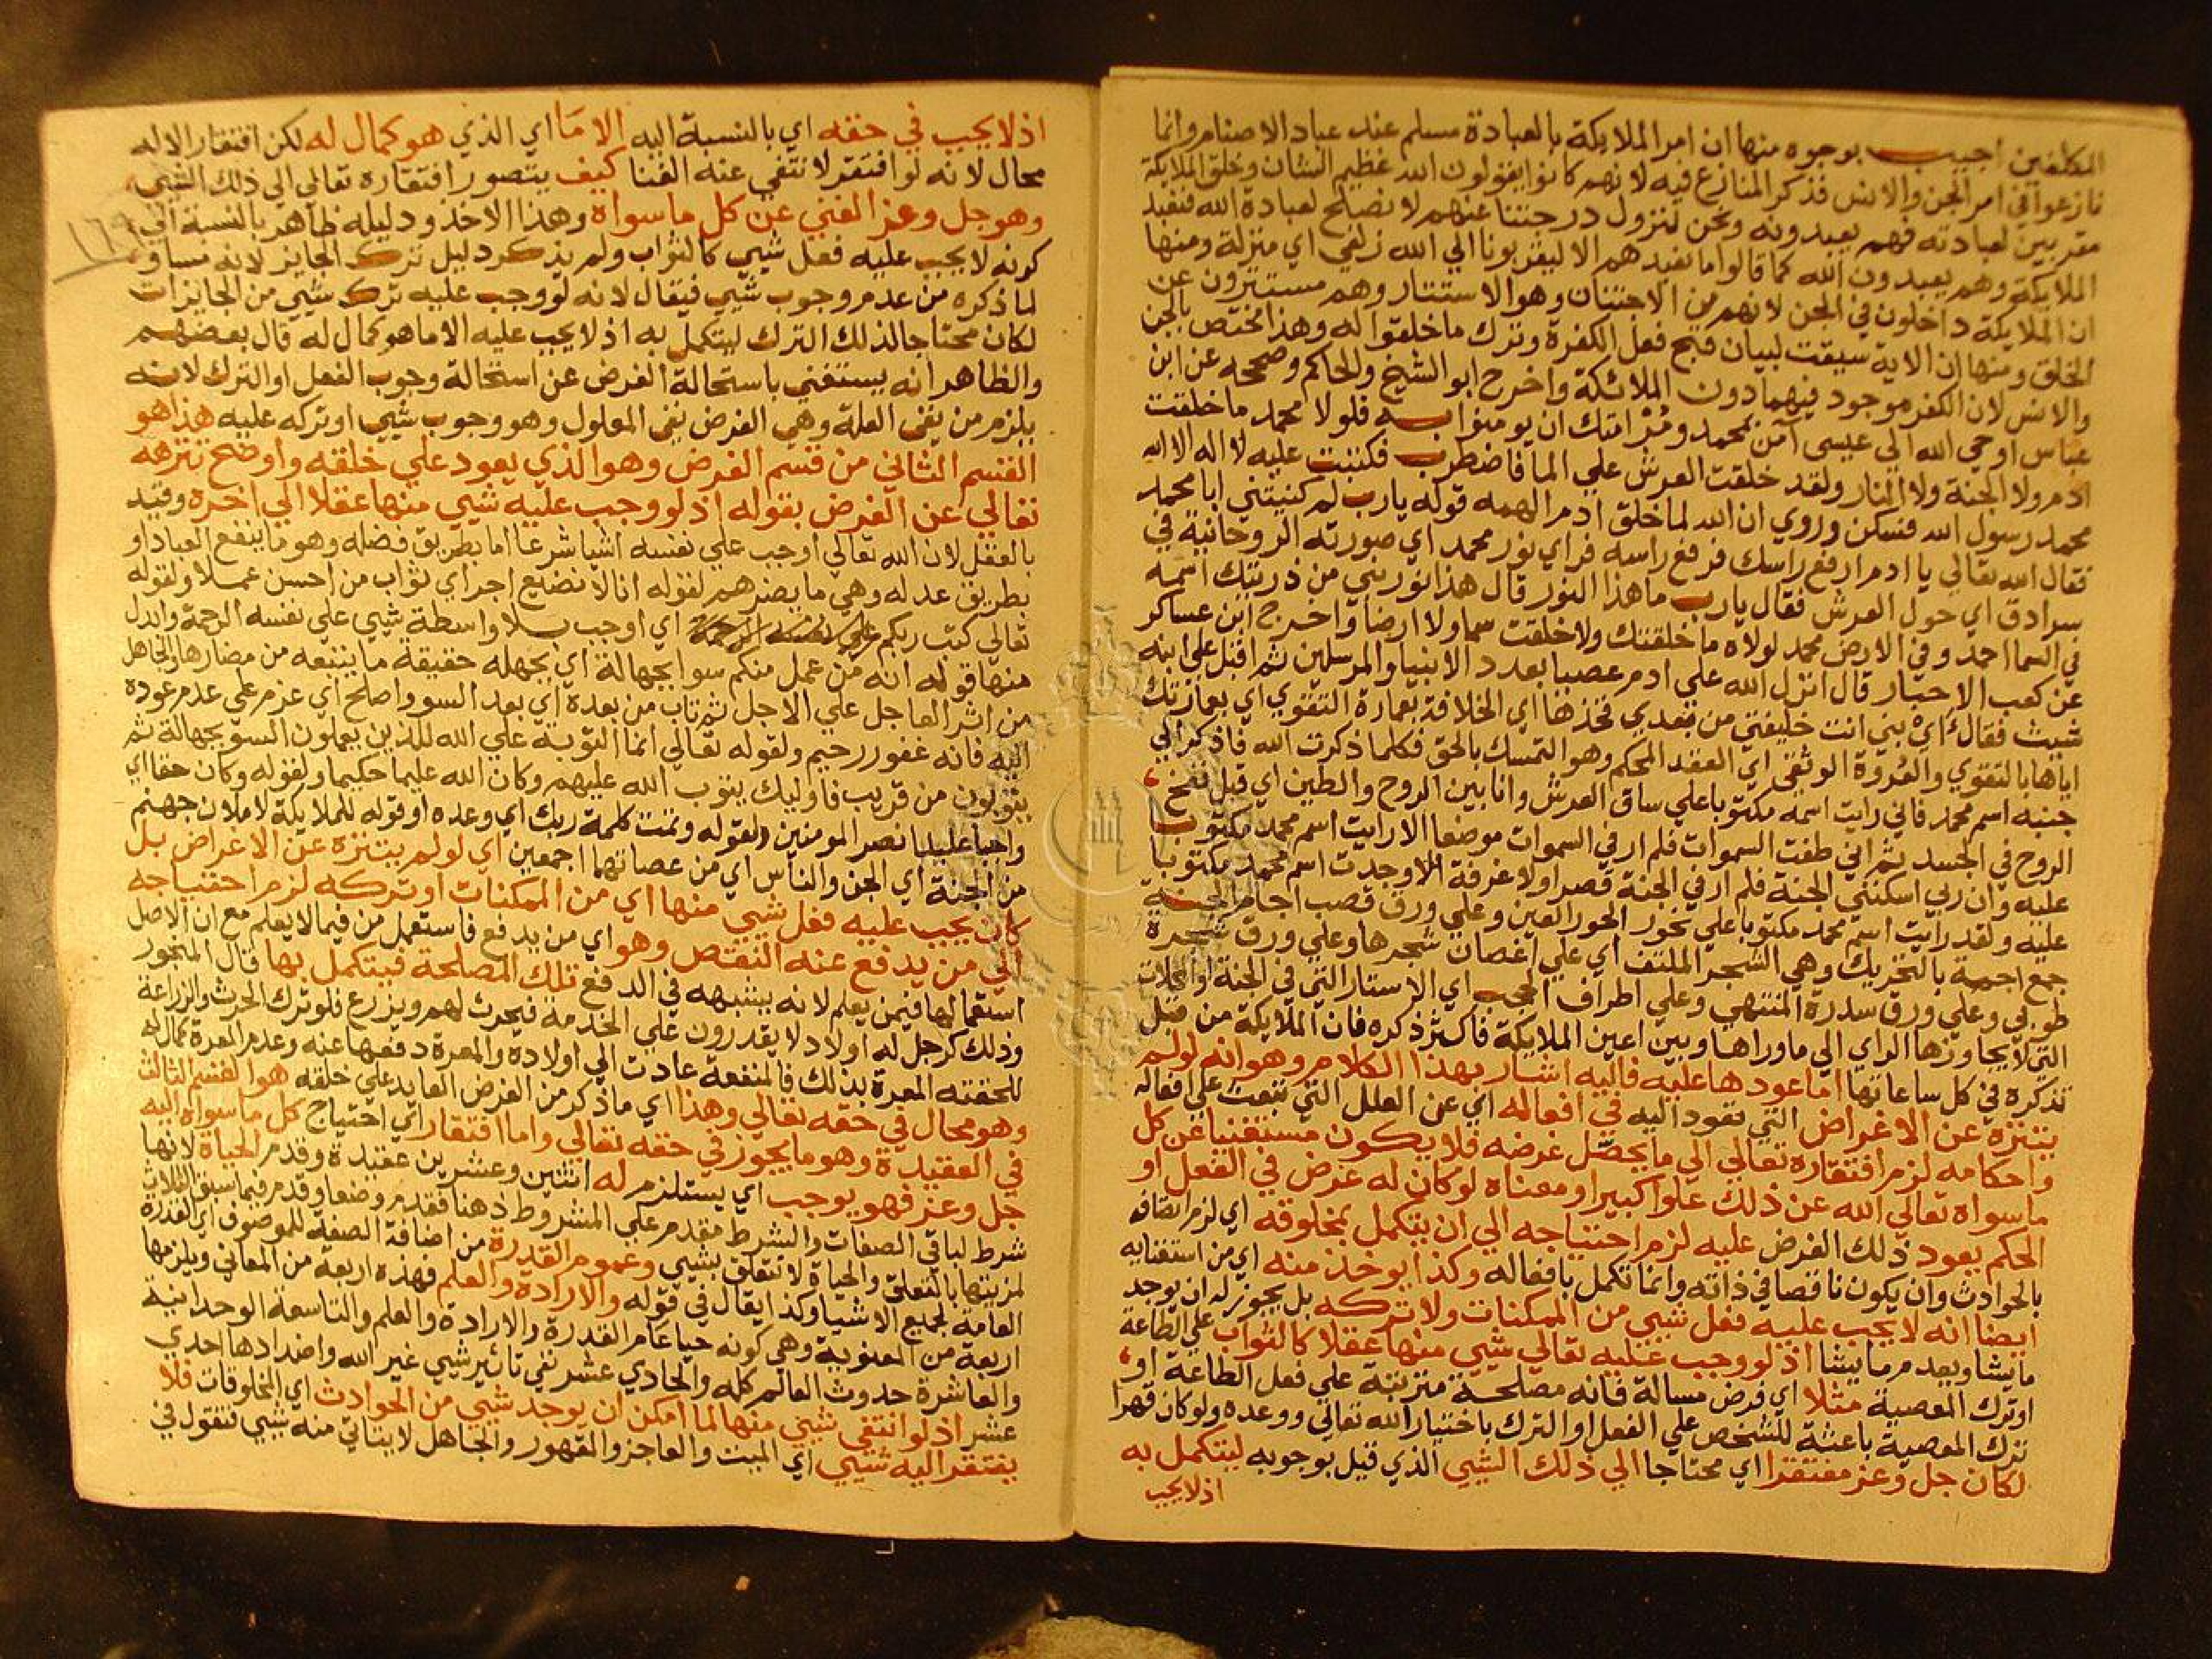 المكلفين اجيب بوجوه منها ان امر الملايكة بالعبادة مسلم عند عباد الاصنام وانما
نازعوا في امر الجن والانس فذكر المنازع فيه لانهم كانوا يقولون الله عظيم الشان وخلق الملايكة
مقربين لعبادته فهم يعبدونه ونحن لنزول درجتنا عنهم لا نصلح لعبادة الله فنعبد
الملايكة وهم يعبدون الله كما قالوا ما نعبدهم الا ليقربونا الي الله زلفي اي منزلة ومنها
ان الملايكة داخلون في الجن لانهم من الاجتنان وهو الاستتار وهم مستترون عن
الخلق ومنها ان الاية سيقت لبيان قبح فعل الكفرة وترك ما خلقوا له وهذا مختص بالجن
والانس لان الكفر موجود فيهما دون الملائكة واخرج ابو الشيخ والحاكم وصححه عن ابن
عباس اوحي الله الي عيسى آمن بمحمد ومُرْ امتك ان يومنوا به فلولا محمد ما خلقت
ادم ولا الجنة ولا النار ولقد خلقت العرش علي الما فاضطرب فكتبت عليه لا اله الا الله
محمد رسول الله فسكن وروي ان الله لما خلق ادم الهمه قوله يارب لم كنيتني ابا محمد
فقال الله تعالي يا ادم ارفع راسك فرفع راسه فراي نور محمد اي صورته الروحانية في
سرادق اي حول العرش فقال يارب ما هذا النور قال هذا نور نبي من ذريتك اسمه
في السما احمد وفي الارض محمد لولاه ما خلقتك ولا خلقت سما ولا ارضا واخرج ابن عساكر
عن كعب الاحبار قال انزل الله علي ادم عصيا بعدد الانبيا والمرسلين ثم اقبل علي ابنه
شيث فقال اي بني انت خليفتي من بعدي فخذها اي الخلافة بعمارة التقوي اي بعمارتك
اياها بالتقوي والعُروة الوثقي اي العقد المحكم وهو التمسك بالحق فكلما ذكرت الله فاذكر الي
جنبه اسم محمد فاني رايت اسمه مكتوبا علي ساق العرش وانا بين الروح والطين اي قبل نفخ
الروح في الجسد ثم اني طفت السموات فلم ار في السموات موضعا الا رايت اسم محمد مكتوب
عليه وان ربي اسكنني الجنة فلم ار في الجنة قصرا ولا غرفة الا وجدت اسم محمد مكتوبا
عليه ولقد رايت اسم محمد مكتوبا علي نحور الحور العين وعلي ورق قصب اجام الجنة
جمع اجمة بالتحريك وهي الشجر الملتف اي علي اغصان شجرها وعلي ورق شجرة
طوبي وعلي ورق سدرة المنتهي وعلي اطراف الحجب اي الاستار التي في الجنة
التي لا يجاوزها الراي الي ما وراها وبين اعين الملايكة فاكثر ذكره فان الملايكة من قبل
تذكره في كل ساعاتها اما عودها عليه فاليه اشار بهذا الكلام وهو انه لو لم
يتنزه عن الاغراض التي تعود اليه في افعاله اي عن العلل التي تبعث علي افعاله
واحكامه لزم افتقاره تعالي الي ما يحصّل غرضه فلا يكون مستغنيا عن كل
ما سواه تعالي الله عن ذلك علوا كبيرا ومعناه لو كان له غرض في الفعل او
الحكم يعود ذلك الغرض عليه لزم احتياجه الي ان يتكمل بمخلوقه اي لزم اتصافه
بالحوادث وان يكون ناقصا في ذاته وانما تكمل بافعاله وكذا يوخذ منه اي من استغنايه
ايضا انه لا يجب عليه فعل شيي من الممكنات ولا تركه بل يجوز له ان يوجد
ما يشا ويعدم ما يشا اذ لو وجب عليه تعالي شيي منها عقلا كالثواب علي الطاعة
او ترك المعصية مثلا اي فرض مسالة فانه مصلحة مترتبة علي فعل الطاعة او
ترك المعصية باعثة للشخص علي الفعل او الترك باختيار الله تعالي ووعده ولو كان قهرا
لكان جل وعز مفتقرا اي محتاجا الي ذلك الشيي الذي قيل بوجوبه ليتكمل به
اذ لا يجب
اذ لا يجب في حقه اي بالنسبة اليه الا ما اي الذي هو كمال له لكن افتقار الاله
محال لانه لو افتقر لانتفي عنه الغنا كيف يتصور افتقاره تعالي الي ذلك الشيي
وهو جل وعز الغني عن كل ما سواه وهذا الاخذ ودليله ظاهر بالنسبة الي
١٦٩
كونه لا يجب عليه فعل شيي كالثواب ولم يذكر دليل ترك الجايز لانه مساو
لما ذكره من عدم وجوب شيي فيقال لانه لو وجب عليه ترك شيي من الجايزات
لكان محتاجا لذلك الترك ليتكمل به اذ لا يجب عليه الا ما هو كمال له قال بعضهم
والظاهر انه يستغني باستحالة الغرض عن استحالة وجوب الفعل او الترك لانه
يلزم من نفي العلة وهي الغرض نفي المعلول وهو وجوب شيي او تركه عليه هذا هو
القسم الثاني من قسم الغرض وهو الذي يعود علي خلقه واوضح تنزهه
تعالي عن الغرض بقوله اذ لو وجب عليه شيي منها عقلا الي اخره وقيد
بالعقل لان الله تعالي اوجب علي نفسه اشيا شرعا اما بطريق فضله وهو ما ينفع العباد او
بطريق عدله وهي ما يضرهم لقوله انا لا نضيع اجر اي ثواب من احسن عملا ولقوله
تعالي كتب ربكم علي نفسه الرحمة اي اوجب بلا واسطة شيي علي نفسه الرحمة وابدل
منها قوله انه من عمل منكم سوا بجهالة اي بجهله حقيقة ما يتبعه من مضارها والجاهل
من اثر العاجل علي الاجل ثم تاب من بعده اي بعد السو واصلح اي عزم علي عدم عوده
اليه فانه غفور رحيم ولقوله تعالي انما التوبة علي الله للذين يعملون السو بجهالة ثم
يتوبون من قريب فاوليك يتوب الله عليهم وكان الله عليما حكيما ولقوله وكان حقا اي
واجبا علينا نصر المومنين ولقوله وتمت كلمة ربك اي وعده او قوله للملايكة لاملان جهنم
من الجنة اي الجن والناس اي من عصاتهما اجمعين اي لو لم يتنزه عن الاغراض بل
كان يجب عليه فعل شيي منها اي من الممكنات او تركه لزم احتياجه
الي من يدفع عنه النقص وهو اي من يدفع فاستعمل من فيما لا يعلم مع ان الاصل
استعمالها فيمن يعلم لانه يشبهه في الدفع تلك المصلحة فيتكمل بها قال المنجور
وذلك كرجل له اولاد لا يقدرون علي الخدمة فيحرث لهم ويزرع فلو ترك الحرث والزراعة
للحقته المعرة بذلك فالمنفعة عادت الي اولاده والمعرة دفعها عنه وعدم المعرة كمال له
وهو محال في حقه تعالي وهذا اي ما ذكر من الغرض العايد علي خلقه هو القسم الثالث
في العقيدة وهو ما يجوز في حقه تعالي واما افتقار اي احتياج كل ما سواه اليه
جل وعز فهو يوجب اي يستلزم له اثنتين وعشرين عقيدة وقدم الحياة لانها
شرط لباقي الصفات والشرط مقدم علي المشروط ذهنا فقدم وضعا وقدم فيما سبق الثلاث
لمزيتها بالتعلق والحياة لا تتعلق بشيي وعموم القدرة من اضافة الصفة للموصوف اي القدرة
العامة لجميع الاشيا وكذا يقال في قوله والارادة والعلم فهذه اربعة من المعاني ويلزمها
اربعة من المعنوية وهي كونه حيا عام القدرة والارادة والعلم والتاسعة الوحدانية
والعاشرة حدوث العالم كله والحادي عشر نفي تاثير شيي غير الله واضدادها احدي
عشر اذ لو انتفي شيي منها لما امكن ان يوجد شيي من الحوادث اي المخلوقات فلا
يفتقر اليه شيي اي الميت والعاجز والمقهور والجاهل لا يتاتي منه شيي فنقول في